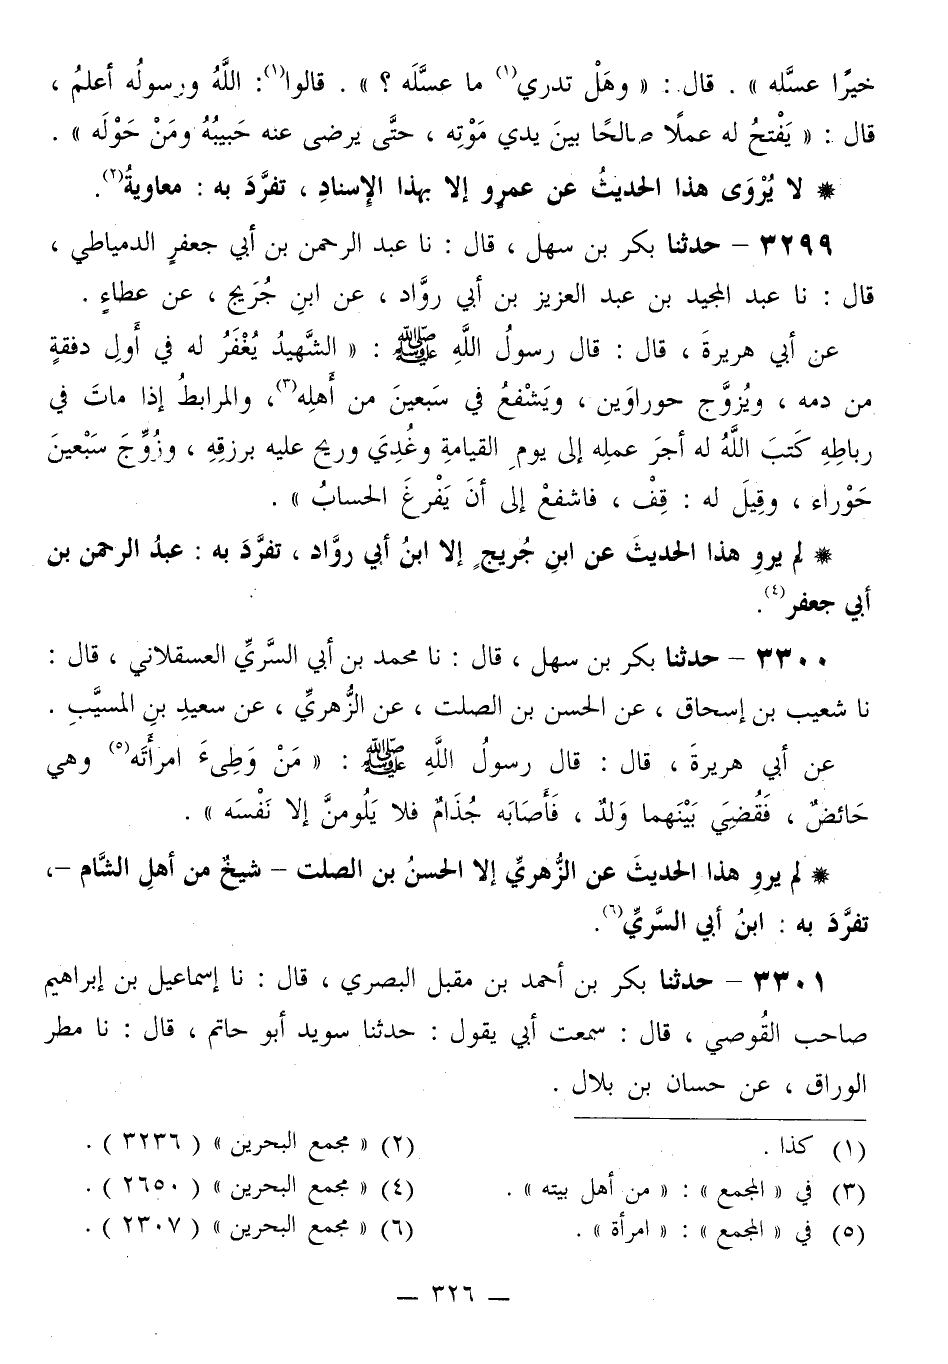 خيرًا عسَّله » . قال : « وهَلْ تدري(١) ما عسَّلَه ؟ » . قالوا(١): اللَّهُ ورسولُه أعلمُ ،
قال : « يَفْتحُ له عملًا صالحًا بينَ يدي مَوْتِه ، حتَّى يرضى عنه حَبيبُهُ ومَنْ حَوْلَه » .
* لا يُرْوَى هذا الحديثُ عن عمرٍو إلا بهذا الإِسنادِ ، تفرَّدَ به : معاويةُ(٢).
٣٢٩٩ – حدثنا بكر بن سهل ، قال : نا عبد الرحمن بن أبي جعفرٍ الدمياطي ،
قال : نا عبد المجيد بن عبد العزيز بن أبي روَّاد ، عن ابنِ جُرَيج ، عن عطاءٍ .
عن أبي هريرةَ ، قال : قال رسولُ اللَّهِ ﷺ : « الشَّهيدُ يُغْفَرُ له في أَولِ دفقةٍ
من دمه ، ويُزوَّج حوراوَين ، ويَشْفعُ في سَبعينَ من أَهلِه(٣)، والمرابطُ إذا ماتَ في
رباطِهِ كَتبَ اللَّهُ له أجرَ عملِه إلى يومِ القيامةِ وغُدِيَ وريح عليه برزقِهِ ، وزُوِّجَ سَبْعينَ
حَوْراء ، وقِيلَ له : قِفْ ، فاشفعْ إلى أنَ يَفْرغَ الحسابُ » .
* لم يروِ هذا الحديثَ عن ابنِ جُريجٍ إلا ابنُ أبي روَّاد ، تفرَّدَ به : عبدُ الرحمن بن
أبي جعفر(٤).
٣٣٠٠ – حدثنا بكر بن سهل ، قال : نا محمد بن أبي السَّريِّ العسقلاني ، قال :
نا شعيب بن إسحاق ، عن الحسن بن الصلت ، عن الزُّهريِّ ، عن سعيدِ بنِ المسيَّبِ .
عن أبي هريرةَ ، قال : قال رسولُ اللَّهِ ﷺ : « مَنْ وَطِىءَ امرأَتَه(٥) وهي
حَائضٌ ، فَقُضيَ بَيْنَهما وَلدٌ ، فَأَصَابَه جُذَامٌ فلا يَلُومنَّ إلا نَفْسَه » .
* لم يروِ هذا الحديثَ عن الزُّهريِّ إلا الحسنُ بن الصلت – شيخٌ من أهلِ الشَّام –،
تفرَّدَ به : ابنُ أبي السَّريِّ(٦).
٣٣٠١ – حدثنا بكر بن أحمد بن مقبل البصري ، قال : نا إسماعيل بن إبراهيم
صاحب القُوصي ، قال : سمعت أبي يقول : حدثنا سويد أبو حاتم ، قال : نا مطر
الوراق ، عن حسان بن بلال .
(١) كذا .
(٢) « مجمع البحرين » ( ٣٢٣٦ ) .
(٣) في « المجمع » : « من أهل بيته » .
(٤) « مجمع البحرين » ( ٢٦٥٠ ) .
(٥) في « المجمع » : « امرأة » .
(٦) « مجمع البحرين » ( ٢٣٠٧ ) .
— ٣٢٦ —